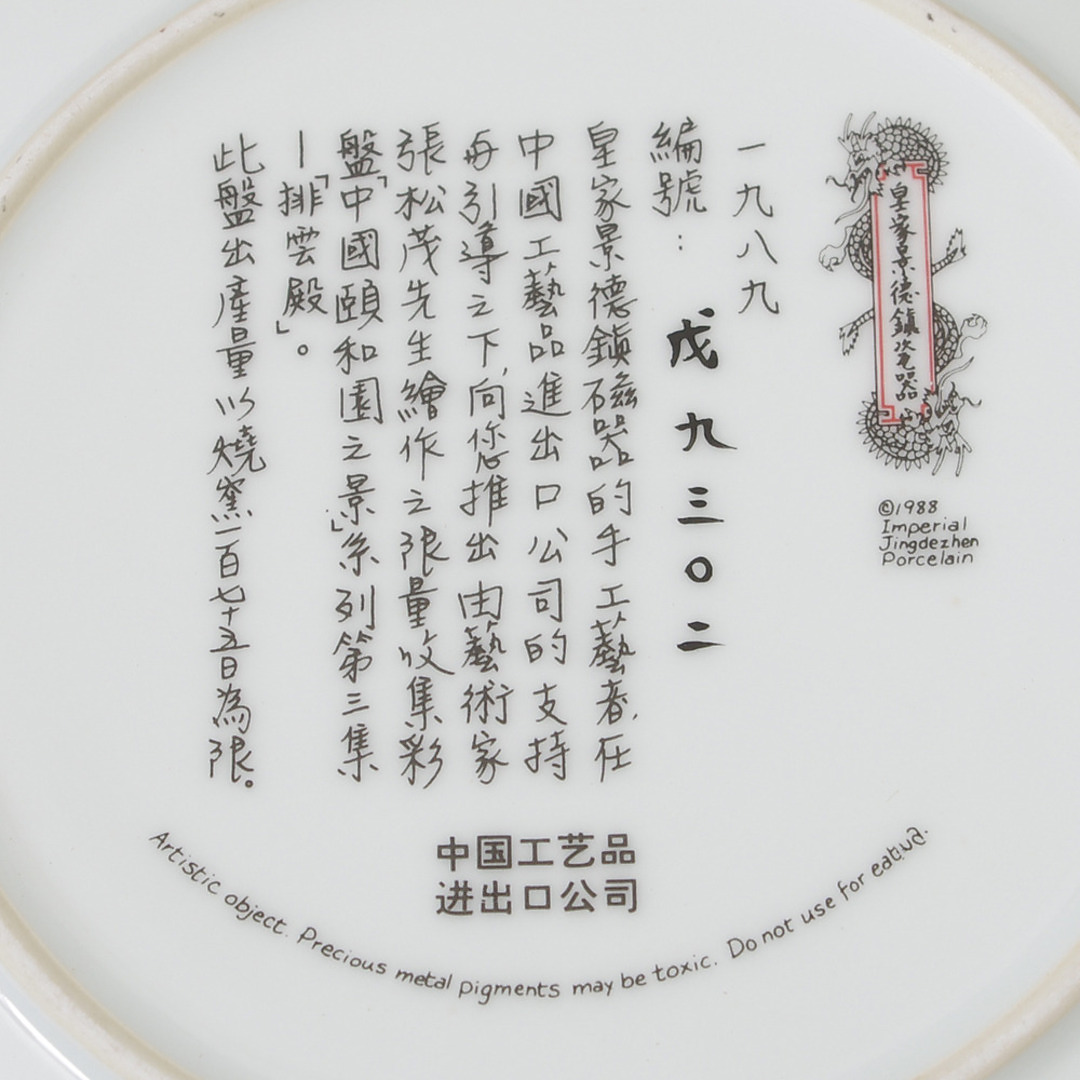 皇家景德鎮瓷器
©1988
Imperial
Jingdezhen
Porcelain
一九八九
編號：戊九三〇二
皇家景德鎮磁器的手工藝者，在
中國工藝品進出口公司的支持
與引導之下，向您推出由藝術家
張松茂先生繪作之限量收集彩
盤「中國頤和園之景」系列第三集
—「排雲殿」。
此盤出產量以燒窯一百七十五日為限。
中国工艺品
进出口公司
Artistic object. Precious metal pigments may be toxic. Do not use for eating.